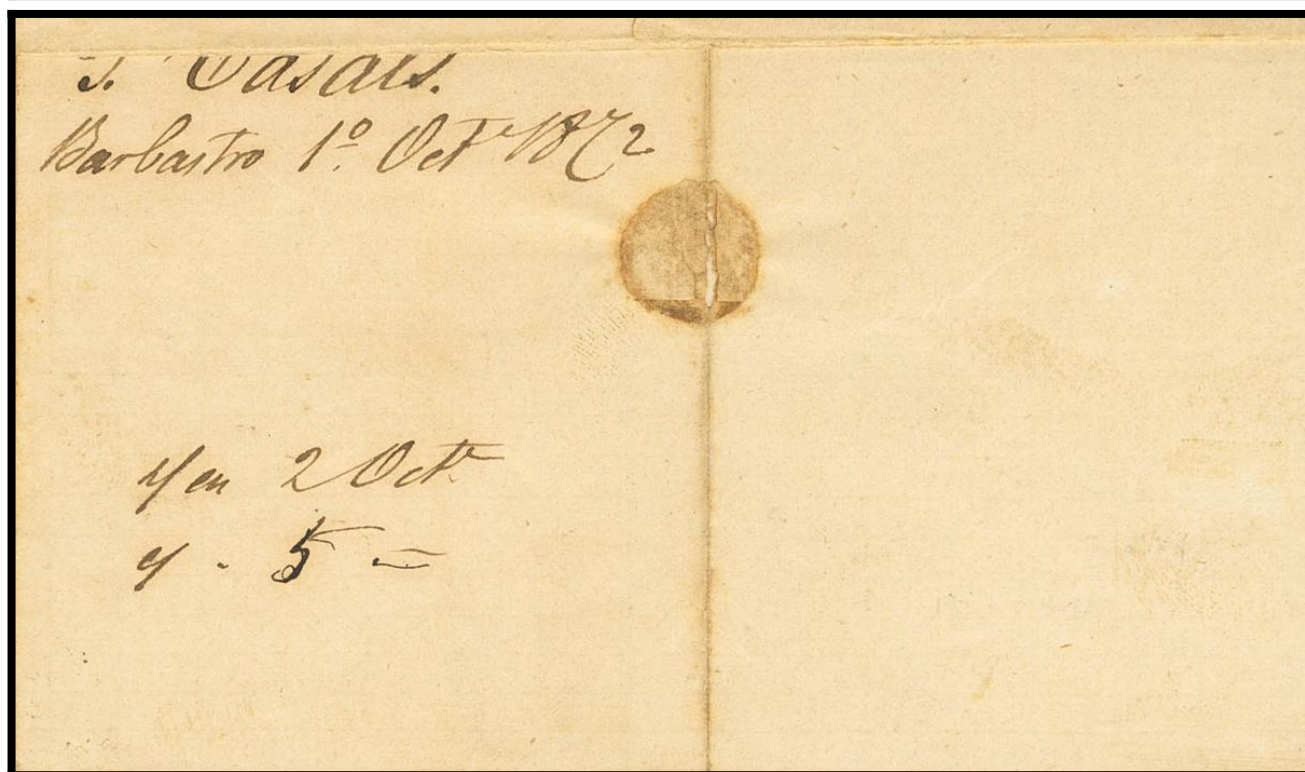 J. Casals.
Barbastro 1º. Oct.e 1872
r/ en 2 Oct.e
c/ . 5 =